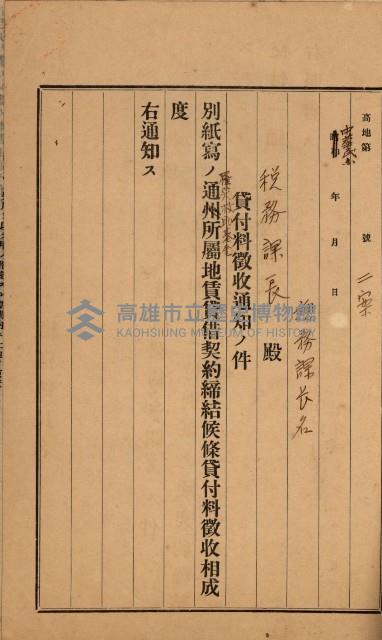 高地第　　號　二案
中華民國
昭和　年　月　日
總務課長名
稅務課長殿
貸付料徵收通知ノ件
別紙寫ノ通州所屬地賃貸借契約締結候條貸付料徵收相成
度
右通知ス
高雄市立歷史博物館
KAOHSIUNG MUSEUM OF HISTORY